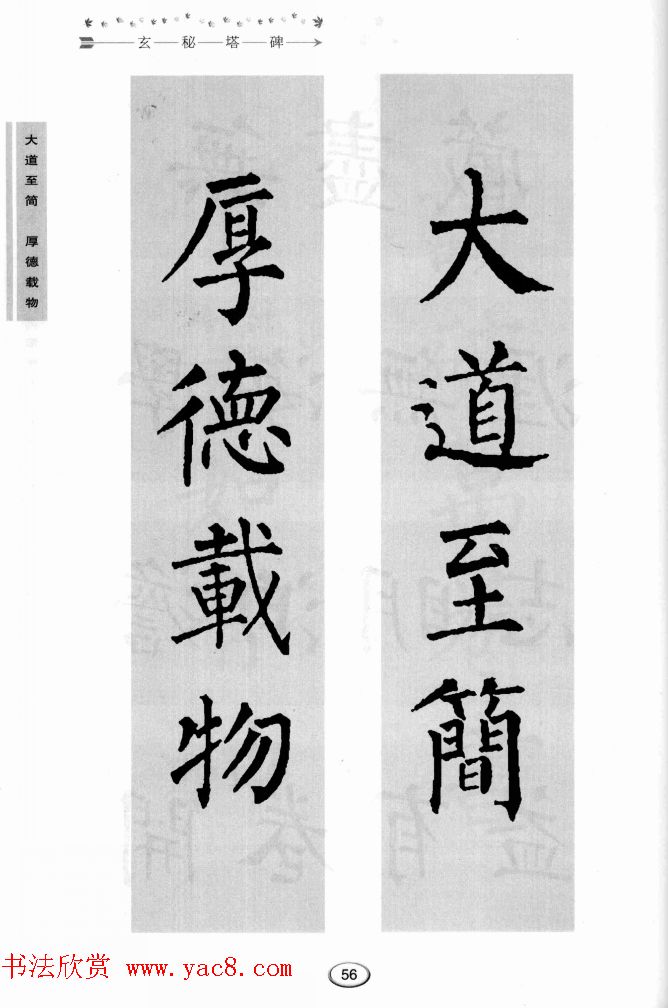 玄秘塔碑
大道至简 厚德载物
大道至簡
厚德載物
书法欣赏 www.yac8.com
56